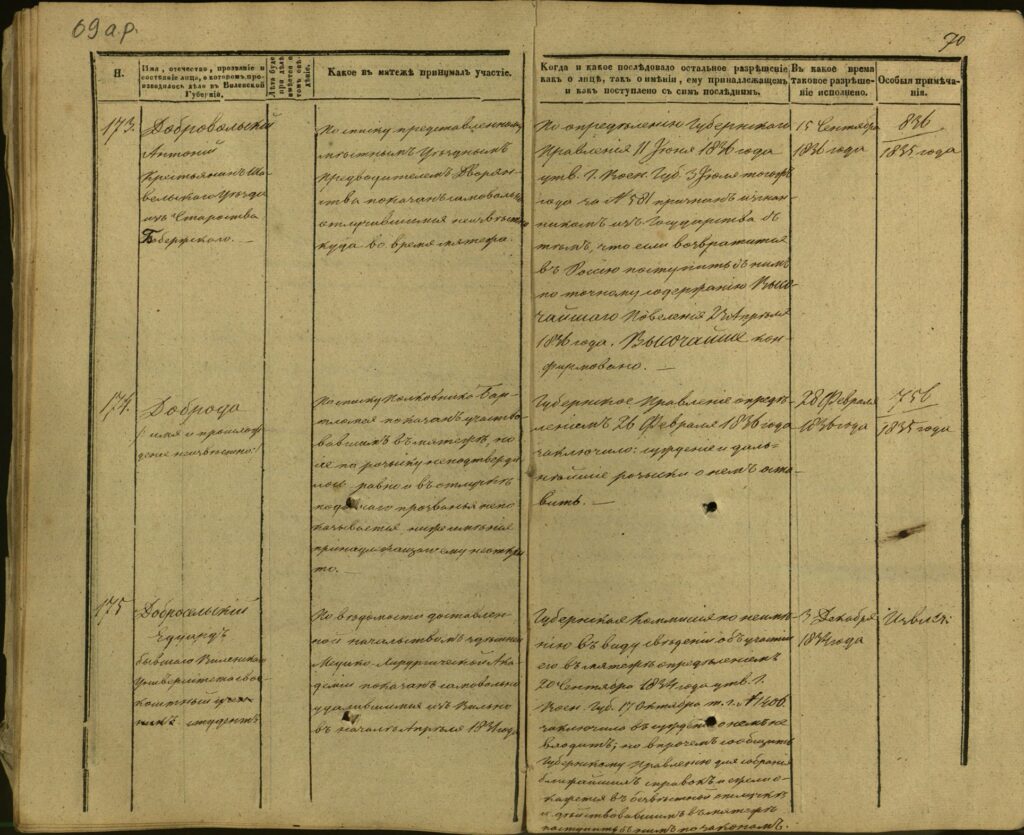 69 а.р.
70
Н.
Имя, отечество, прозвание и
состояние лица, о котором про-
изводилось дело в Виленской
Губернии.
Какое въ мятежѣ принималъ участіе.
Когда и какое послѣдовало остальное разрѣшеніе
какъ о лицѣ, такъ о имѣніи, ему принадлежащемъ
и какъ поступлено съ симъ послѣднимъ.
Въ какое время
таковое разрѣше-
ніе исполнено.
Особыя примѣча-
нія.
173.
Добровольскій
Антоній
Крестьянинъ Ша-
вельскаго Уѣзда
изъ Староства
По списку представленному
мѣстнымъ Уѣзднымъ
Предводителемъ Дворян-
ства показанъ самовольно
отлучившимся неизвѣстно
куда во время мятежа.
По опредѣленію Губернскаго
Правленія 11 Іюня 1836 года
утв. Г. Воен. Губ. 3 Іюля того жъ
года за № 581 признанъ изгнан-
никомъ изъ Государства съ
тѣмъ, что если возвратится
въ Россію поступить съ нимъ
по точному содержанію Высо-
чайшаго Повеленія 23 Апрѣля
1836 года. Высочайше кон-
фирмовано. —
15 Сентября
1836 года
836
1835 года
174.
Доброда
/: имя и происхож-
деніе неизвѣстно:/
По списку Полковника Бар-
показанъ участво-
вавшимъ въ мятежѣ, но
сіе по розыску неподтверди-
лось равно и въ отлучкѣ
прозванья непо-
казывается ниже имѣнія
принадлежащаго ему неоткры-
то. —
Губернское Правленіе опредѣ-
леніемъ 26 Февраля 1836 года
заключило: сужденіе и даль-
нѣйшіе розыски о немъ оста-
вить. —
28 Февраля
1836 года
756
1835 года
175
Добросельскій
Эдуардъ
бывшаго Виленскаго
Университета сво-
студентъ
По вѣдомости доставлен-
ной начальствомъ здѣшней
Медико-Хирургической Ака-
деміи показанъ самовольно
удалившимся изъ Вильно
въ началѣ Апрѣля 1831 года
Губернская Коммисія по неимѣ-
нію въ виду сведеній объ участіи
его въ мятежѣ опредѣленіемъ
20 Сентября 1834 года утв. Г.
Воен. Губ. 17 Октября т. г. № 1406
заключила въ сужденіе о немъ не
входить; но впрочемъ сообщить
Губернскому Правленію для собранія
ближайшихъ справокъ и ежели о-
кажется въ безвѣстной отлучкѣ
и дѣйствовавшимъ въ мятежѣ
поступить съ нимъ по законамъ.
3 Декабря
1834 года